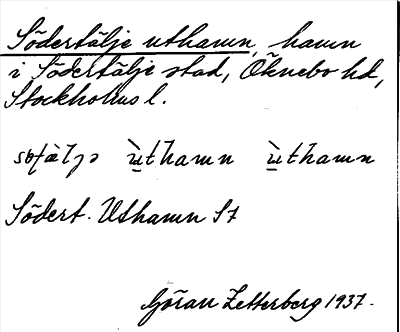 Södertälje uthamn, hamn
i Södertälje stad, Öknebo hd,
Stockholms l.
ùthamn ùthamn
Södert. Uthamn St
Göran Zetterberg 1937.